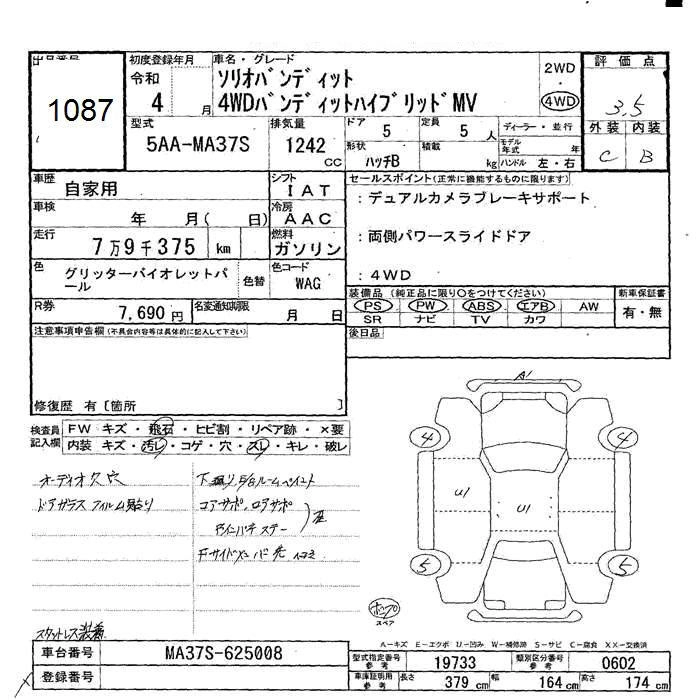 出品番号
1087
初度登録年月
令和
4 月
車名・グレード
ソリオバンディット
4WDバンディットハイブリッドMV
2WD
4WD
評価点
3.5
外装 内装
C B
型式
5AA-MA37S
排気量
1242 cc
ドア 5
定員 5 人
ディーラー・並行
形状 ハッチB
積載 kg
モデル年式 年
ハンドル 左・右
車歴 自家用
シフト IAT
車検 年 月( 日)
冷房 AAC
走行 7万9千375 km
燃料 ガソリン
色 グリッターバイオレットパール
色替
色コード WAG
R券 7,690円
名変通知期限 月 日
セールスポイント(正常に機能するものに限ります)
:デュアルカメラブレーキサポート
:両側パワースライドドア
:4WD
装備品(純正品に限り○をつけてください)
PS PW ABS エアB AW
SR ナビ TV カワ
新車保証書
有・無
後日品
注意事項申告欄(不具合内容等は具体的に記入して下さい)
修復歴 有[箇所 ]
検査員記入欄
FW キズ・飛石・ヒビ割・リペア跡・×要
内装 キズ・汚レ・コゲ・穴・スレ・キレ・破レ
オーディオ欠 穴
ドアガラス フィルム貼り
コアサポ、ログサポ
スタットレス装着
A1
4 4
U1 U1
5 5
スペア
A-キズ E-エクボ U-凹み W-補修跡 S-サビ C-腐食 XX-交換済
車台番号 MA37S-625008
登録番号
型式指定番号 参考 19733
類別区分番号 参考 0602
車庫証明用 参考 長さ 379 cm 幅 164 cm 高さ 174 cm